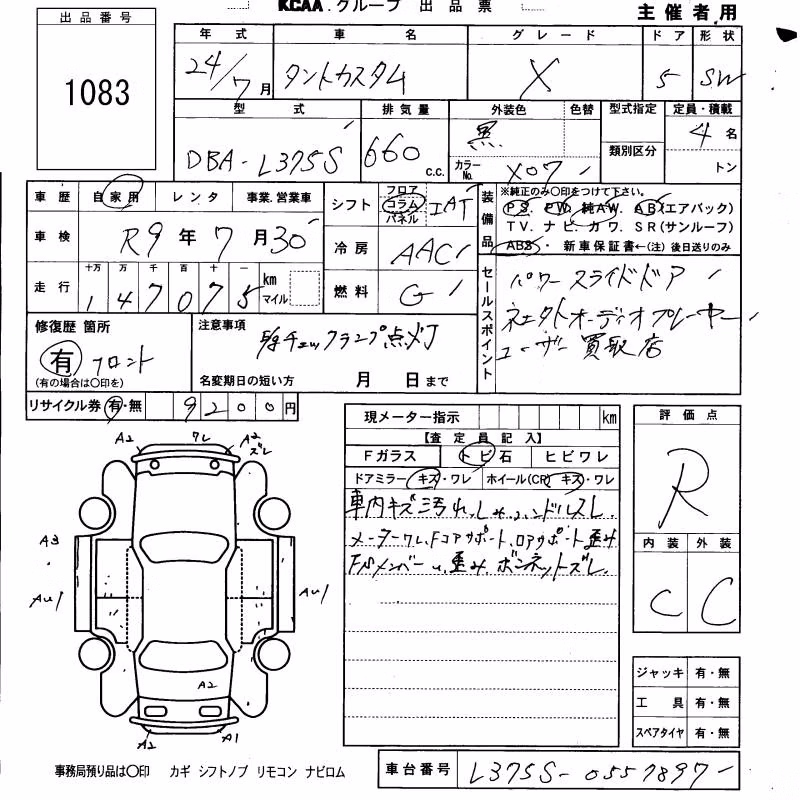 KCAA.グループ 出品票
主催者用
出品番号
1083
年式 車名 グレード ドア 形状
24/7月 タントカスタム X 5 SW
型式 排気量 外装色 色替 型式指定 定員・積載
DBA-L375S 660 C.C. 黒 カラーNo. X07 類別区分 4名 トン
車歴 自家用 レンタ 事業.営業車
車検 R9年7月30
走行 十万 万 千 百 十 一 147075 km マイル
シフト フロア コラム パネル IAT
冷房 AAC
燃料 G
装備品 ※純正のみ〇印をつけて下さい。
PS. PW. 純AW. AB(エアバック)
TV. ナビ. カワ. SR(サンルーフ)
ABS・ 新車保証書←(注) 後日送りのみ
セールスポイント
パワースライドドア
オーディオプレーヤー
ユーザー買取店
修復歴 箇所
有 フロント
(有の場合は〇印を)
注意事項
チェックランプ点灯
名変期日の短い方 月 日まで
リサイクル券 有・無 9200円
現メーター指示 km
【査定員記入】
Fガラス トビ石 ヒビワレ
ドアミラー キズ・ワレ ホイール(CR) キズ・ワレ
車内キズ汚れ. ハンドルスレ.
メーターワレ.Fコアサポート.ロアサポート歪み
メンバー 歪み. ボンネットズレ.
評価点
R
内装 外装
C C
A2 ワレ A2 ズレ
A3
AU1 AU1
A2
A2 A1
ジャッキ 有・無
工具 有・無
スペアタイヤ 有・無
事務局預り品は〇印 カギ シフトノブ リモコン ナビロム
車台番号 L375S-0557897